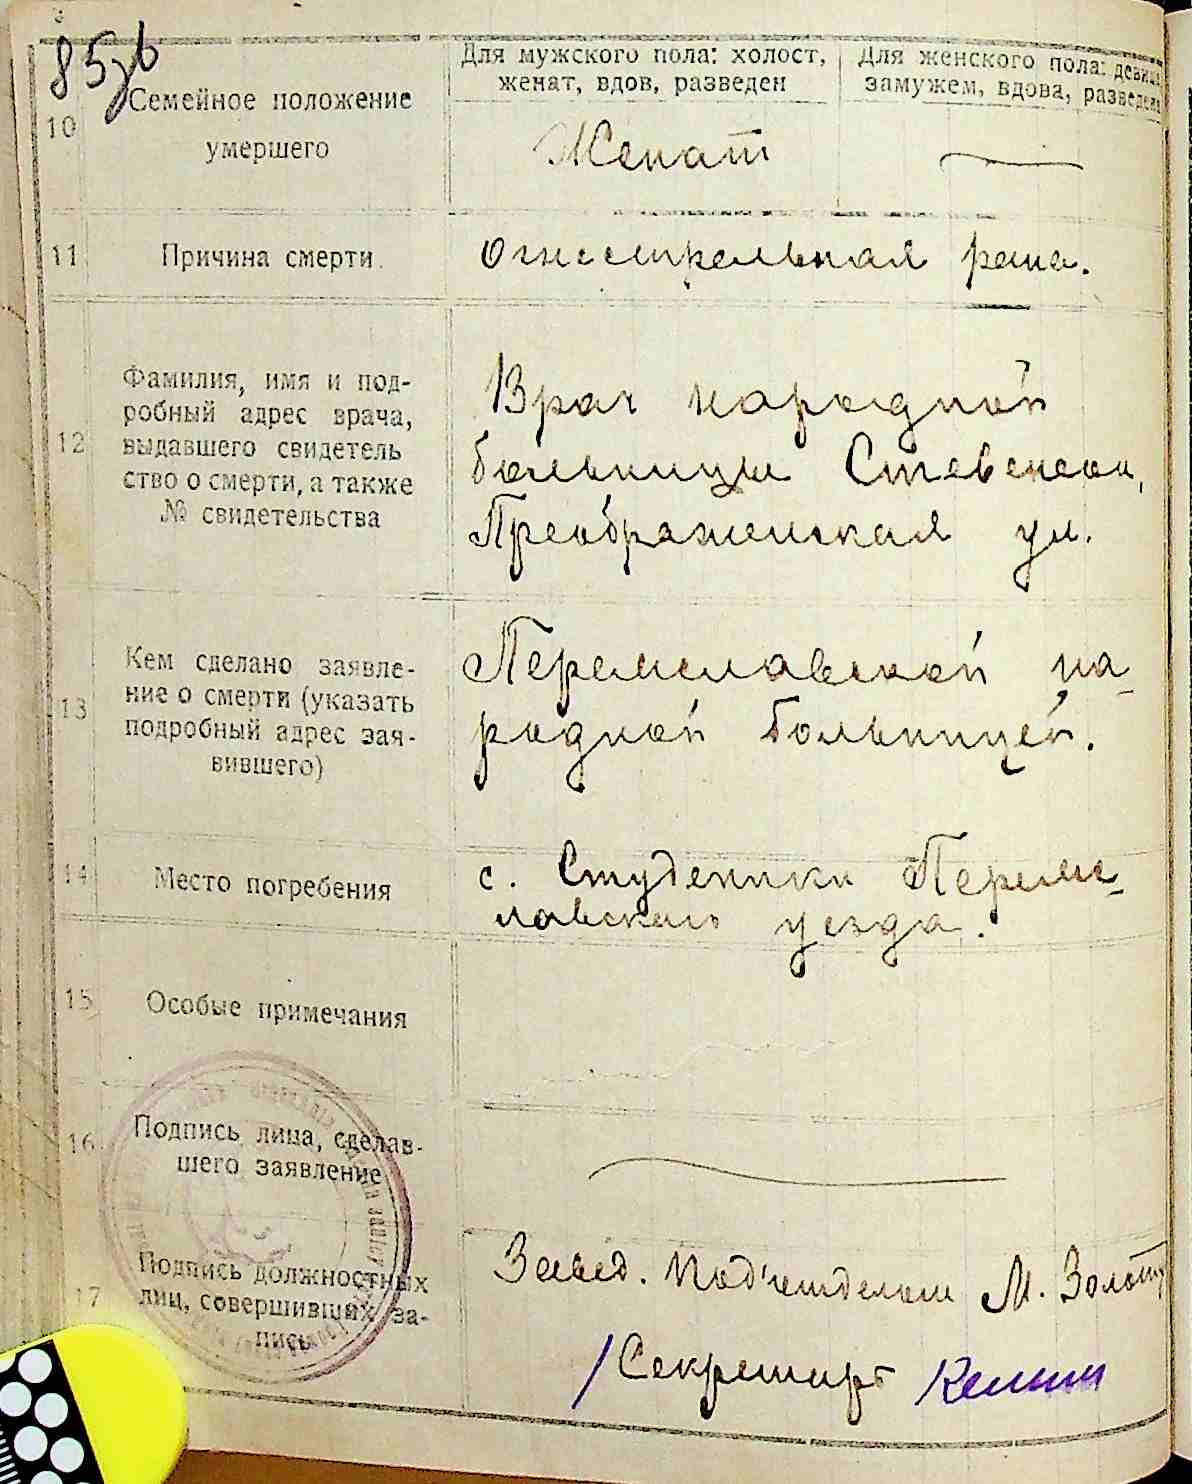 85
Для мужского пола: холост,
женат, вдов, разведен
Для женского пола: девица
замужем, вдова, разведена
10
Семейное положение
умершего
Женат
11
Причина смерти
Огнестрельная рана.
12
Фамилия, имя и под-
робный адрес врача,
выдавшего свидетель
ство о смерти, а также
№ свидетельства
Врач народной
больницы Стевенсон,
Преображенская ул.
13
Кем сделано заявле-
ние о смерти (указать
подробный адрес зая-
вившего)
Переяславской на-
родной больницей.
14
Место погребения
с. Студеники Переяс-
лавского уезда.
15
Особые примечания
16
Подпись лица, сделав-
шего заявление
17
Подпись должностных
лиц, совершивших за-
пись
Завед. Под'отделом М.
Секретарь